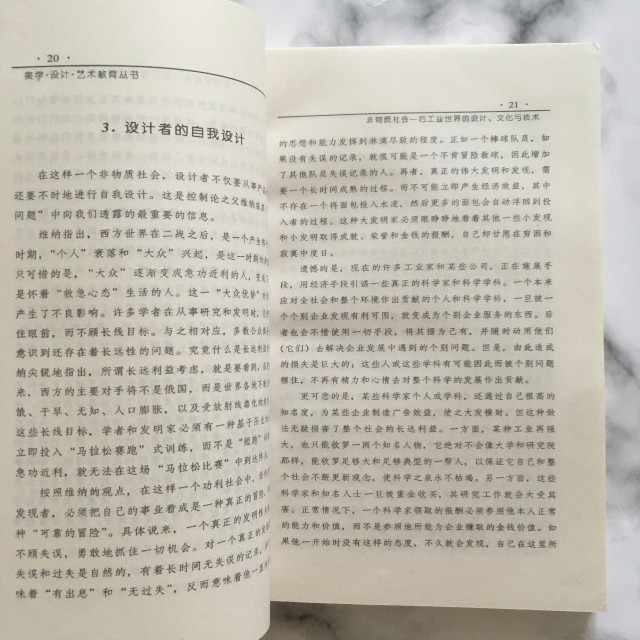 · 20 ·
美学·设计·艺术教育丛书
3．设计者的自我设计
在这样一个非物质社会，设计者不仅要从事产品
还要不时地进行自我设计。这是控制论之父维纳在其
问题”中向我们透露的最重要的信息。
维纳指出，西方世界在二战之后，是一个产生
时期，“个人”衰落和“大众”兴起，是这一时期的
只可惜的是，“大众”逐渐变成急功近利的人，变成
是怀着“救急心态”生活的人。这一“大众优势”
产生了不良影响。许多学者在从事研究和发明时，
住眼前，而不顾长线目标。与之相对应，多数公众
意识到还存在着长远性的问题。究竟什么是长远利
纳尖锐地指出，所谓长远利益考虑，就是要看到，
来，西方的主要对手将不是俄国，而是世界各地不
饿、干旱、无知、人口膨胀，以及受放射线毒化
这些长线目标，学者和发明家必须有一种基于历史
立即投入“马拉松赛跑”式训练，而不是“短跑”
急功近利，就无法在这场“马拉松比赛”中到达终
按照维纳的观点，在这样一个功利社会中，
发现者，必须把自己的事业看成是一种真正的冒险，
种“可靠的冒险”。具体说来，一个真正的发明
不顾失误，勇敢地抓住一切机会。对一个真正的发
失误和过失是自然的，有着长时间无失误的记录，
味着“有出息”和“无过失”，反而意味着他一直
· 21 ·
非物质社会—后工业世界的设计、文化与技术
的思想和能力发挥到淋漓尽致的程度。正如一个棒球队员，如
果没有失误的记录，就很可能是一个不肯冒险救球，因此增加
了其他队员失误记录的人。再者，真正的伟大发明和发现，需
要一个长时间成熟的过程。而不可能立即产生经济效益，其中
不存在一个将面包投入水流，然后更多的面包会自动浮回到投
入者的过程。这种大发明家必须眼睁睁地看着其他一些小发现
和小发明取得成就、荣誉和金钱的报酬，自己却甘愿在穷困和
寂寞中度日。
遗憾的是，现在的许多工业家和某些公司，正在施展手
段，用经济手段引诱一些真正的科学家和科学学科。一个本来
应对全社会和整个环境作出贡献的个人和科学学科，一旦被一
个个别企业发现有利可图，就变成为个别企业服务的东西。后
者也会不惜使用一切手段，将其据为己有，并随时动用他们
（它们）去解决企业发展中遇到的个别问题。但是，由此造成
的损失是巨大的；这些人或这些学科有可能因此而被个别问题
缠住，不再有精力和心情去对整个科学的发展作出贡献。
更可悲的是，某些科学家个人或学科，还通过自己很高的
知名度，为某些企业制造广告效益，使之大发横财。但这种做
法无疑损害了整个社会的长远利益。一方面，某种工业再强
大，也只能收罗一两个知名人物，它绝对不会像大学和研究院
那样，能收罗足够大和足够典型的一帮人，以保证它自己和整
个社会不断更新观念，使科学之泉永不枯竭。另一方面，这些
科学家和知名人士一旦被重金收买，其研究工作就会大受其
害。正常情况下，一个科学家领取的报酬必须参照他本人正常
的能力和价值，而不是参照他所能为企业赚取的金钱价值。如
果他一开始时没有这样的态度，不久就会发现，自己在这里所